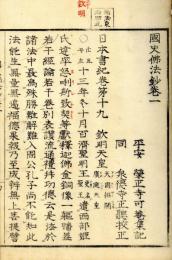 欽明
國史佛法鈔卷一
平安 榮正寺可菴集記
同 正觀校正
日本書紀卷第十九 欽明天皇
十三年冬十月百濟聖明王 遣西部姬
氏達率怒唎斯致契等獻釋迦佛金銅像一軀幡蓋
若干經論若干卷別表讚流通禮拜功德云是法於
諸法中最爲殊勝難解難入周公孔子尚不能知此
法能生無量無邊福德果報乃至成辨無上菩提譬